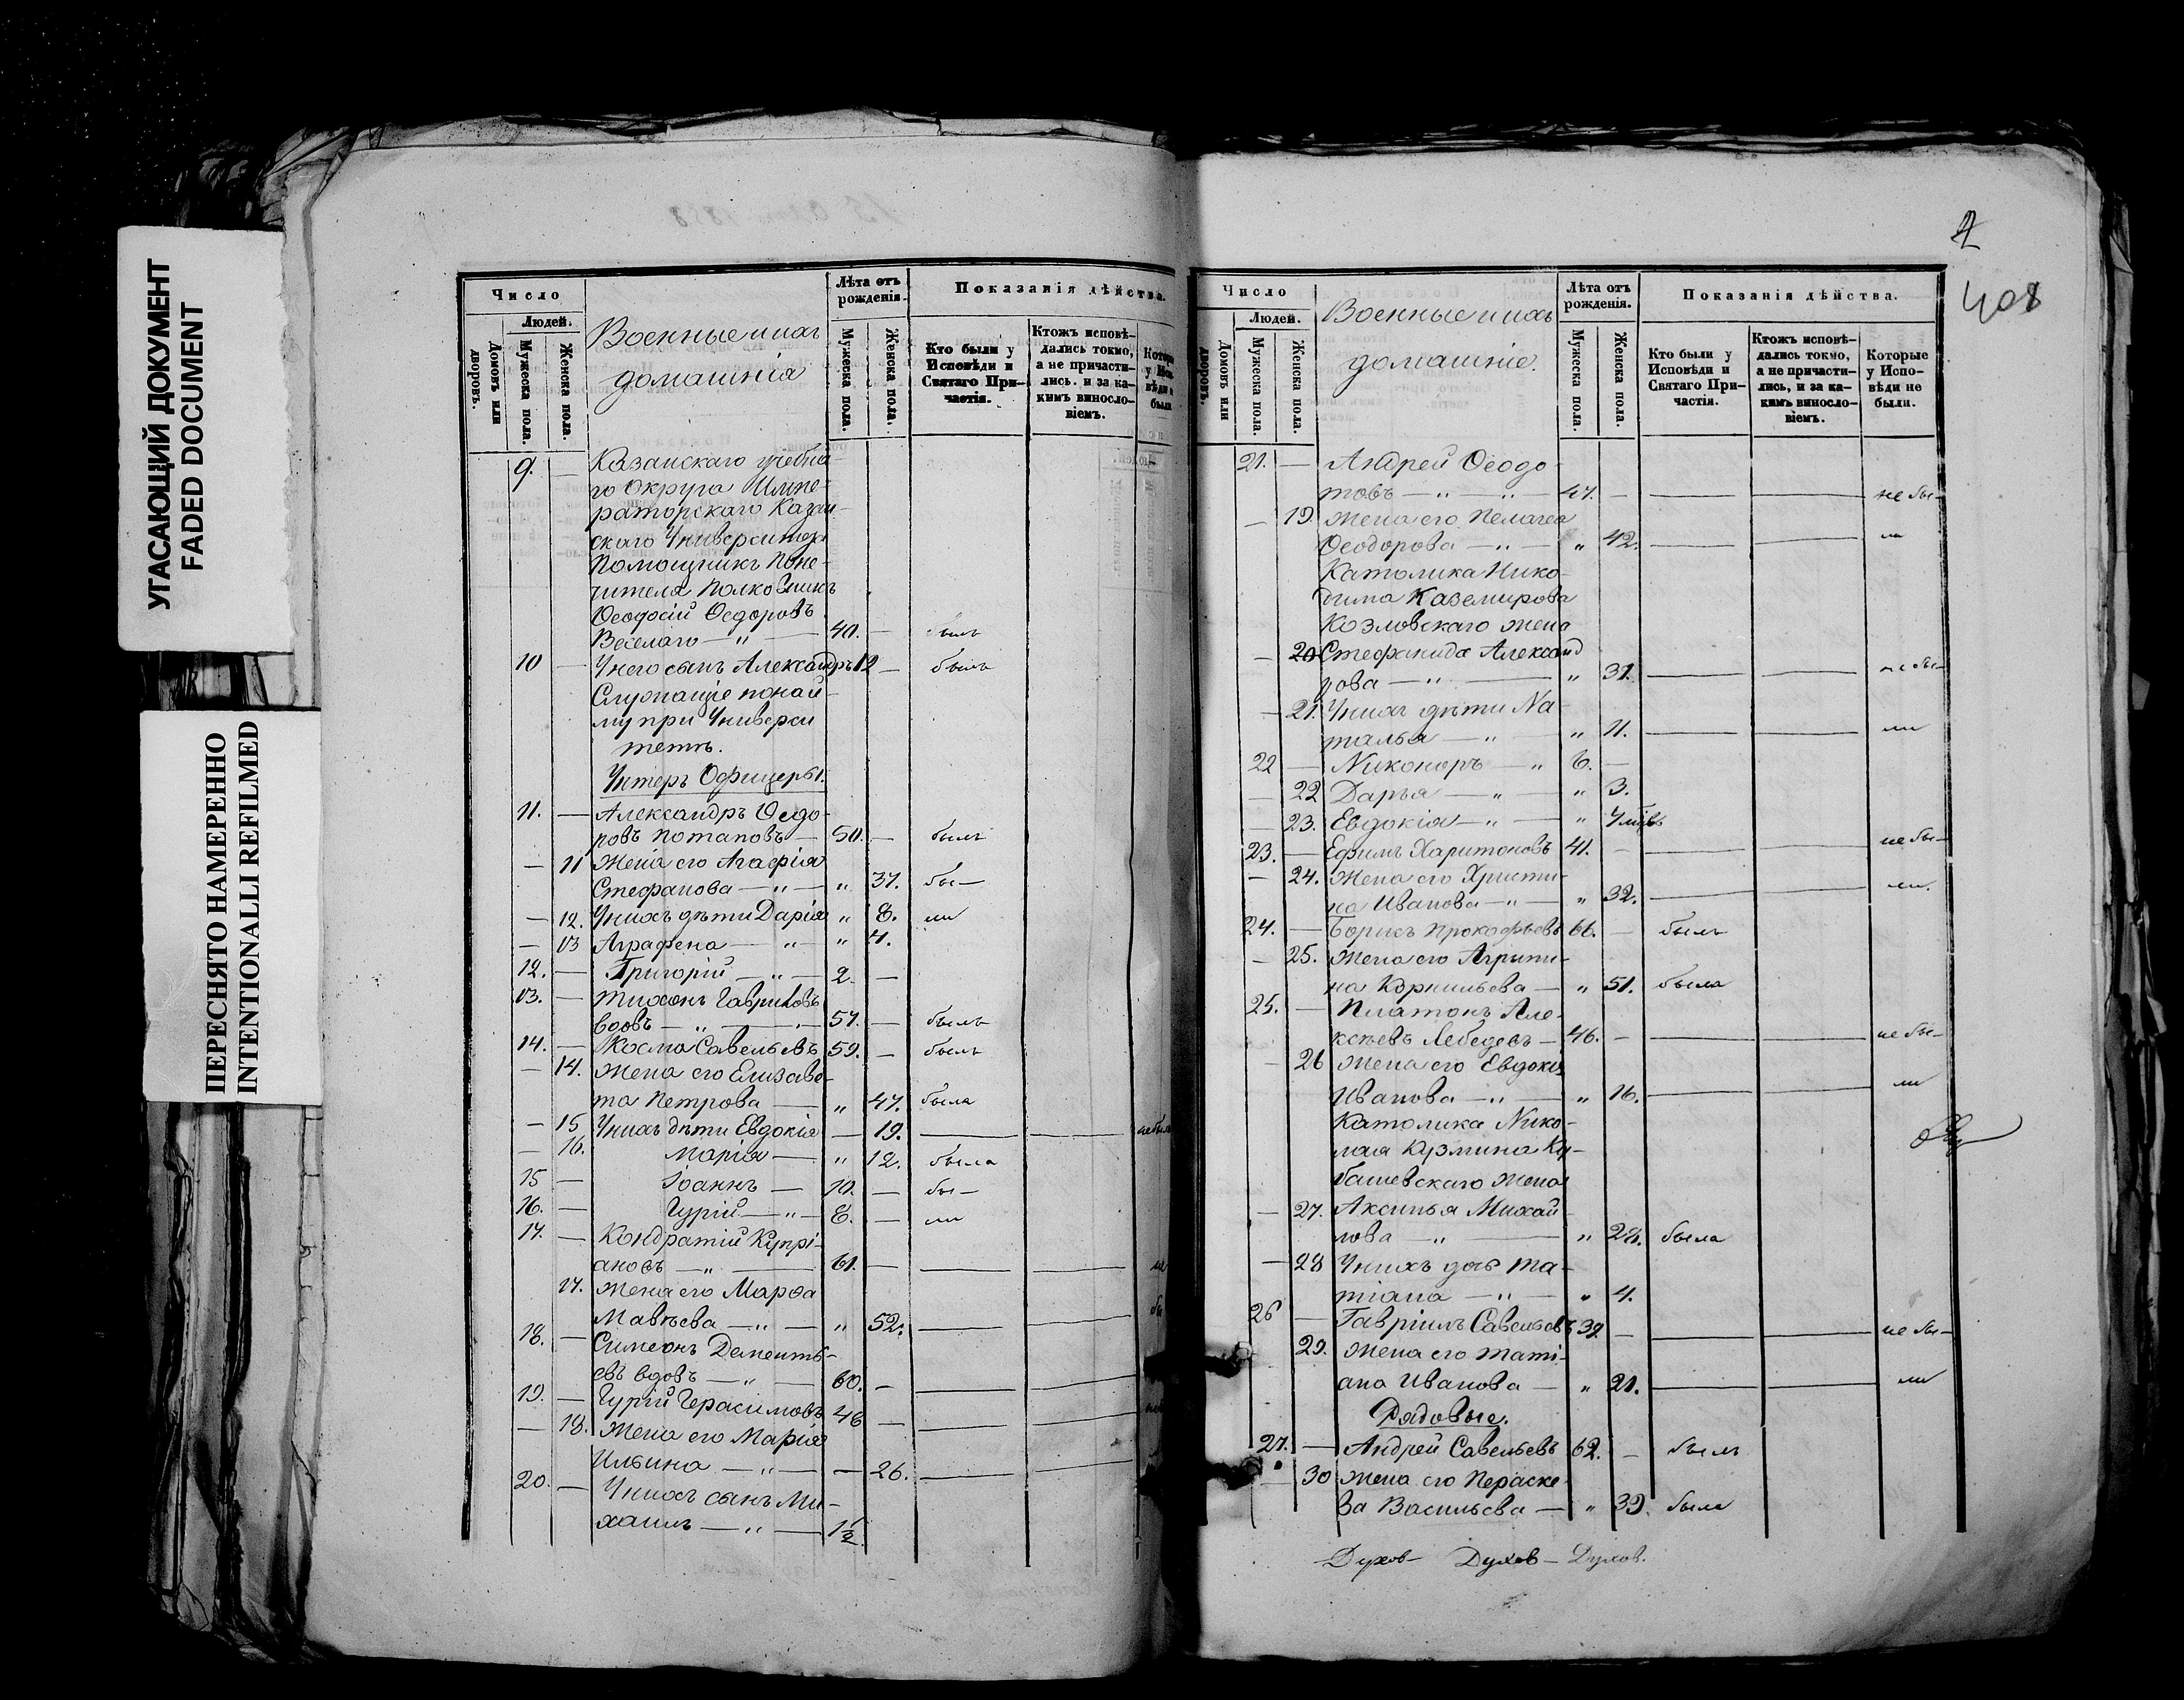 УГАСАЮЩИЙ ДОКУМЕНТ
FADED DOCUMENT
ПЕРЕСНЯТО НАМЕРЕННО
INTENTIONALLI REFILMED
Число
Людей.
Домовъ или дворовъ.
Мужеска пола.
Женска пола.
Военные и ихъ
домашнія
Лѣта отъ рожденія.
Мужеска пола.
Женска пола.
Показанія дѣйства.
Кто были у Исповѣди и Святаго Причастія.
Ктожъ исповѣдались токмо, а не причастились. и за какимъ винословіемъ.
9. — Казанскаго учебна-
го Округа Импе-
раторскаго Казан-
скаго Университета
Помощникъ Попе-
чителя Полковникъ
Ѳеодосій Ѳедоровъ
Веселаго — " — 40. — былъ
10 — У него сынъ Александръ 12 — былъ
Служащіе по най-
му при Универси
тетѣ.
Унтеръ Офицеры.
11. — Александръ Ѳедо-
ровъ Потаповъ — 50. — былъ
— 11 Жена его Агафія
Стефанова — " — " 37. бы—
— 12. У нихъ дѣти Дарія " 8. ли
— 13 Аграфена — " — " 4.
12. — Григорій — " — 2 —
13. — Тихонъ Гавриловъ
вдовъ — " — 57. — былъ
14. — Косма Савельевъ 59. — былъ
— 14. Жена его Елизаве-
та Петрова — " 47. была
— 15 У нихъ дѣти Евдокія — 19. — — не был
— 16. Марія — " 12. была
15 — Іоаннъ — 10. — бы—
16. — Гурій — " — 8. — ли
17. — Кондратій Купрі-
ановъ — " — 61. — — — не
17. Жена его Марѳа
Мавѣева — " — " 52. — — бы
18. — Симеонъ Дементь-
евъ вдовъ — " — 60. — — —
19. — Гурій Герасимовъ 46 — — —
— 18. Жена его Марія
Ильина — " — — 26. — —
20. — У нихъ сынъ Ми-
хаилъ — " — 1½
408
Число
Людей.
Домовъ или дворовъ.
Мужеска пола.
Женска пола.
Военные и ихъ
домашніе.
Лѣта отъ рожденія.
Мужеска пола.
Женска пола.
Показанія дѣйства.
Кто были у Исповѣди и Святаго Причастія.
Ктожъ исповѣдались токмо, а не причастились, и за какимъ винословіемъ.
Которые у Исповѣди не были.
21. — Андрей Ѳеодо-
товъ — " — " — 47. — — — не бы—
— 19 Жена его Пелагея
Ѳеодорова — " — " 42. — — ли
Католика Нико-
дима Каземирова
Козловскаго жена
— 20 Стефанида Александ
рова — " — " 31. — — не бы—
— 21. У нихъ дѣти На-
талья — " — " 11. — — ли
22 — Никоноръ — " 6. —
— 22 Дарья — " — " 3.
— 23. Евдокія — " — "
23. — Ефимъ Харитоновъ 41. — — не бы—
— 24. Жена его Христи-
на Иванова — " — " 32. — ли.
24. — Борисъ Прокофьевъ 66. — былъ
— 25. Жена его Агрипи-
на Корнильева — " 51. была
25. — Платонъ Але-
ксѣевъ Лебедевъ — 46. — — — не бы—
— 26 Жена его Евдокія
Иванова — " — " 16. — — ли
Католика Нико-
лая Кузмина Ку-
башевскаго Жена
— 27. Аксинья Михай-
лова — " — " 28. была
— 28 У нихъ дочь Та-
тіана — " — " 4.
26 — Гавріилъ Савельевъ 39. — — — не бы—
29. Жена его Таті-
ана Иванова — " 21. — — ли
Рядовые.
27. — Андрей Савельевъ 62. — былъ
— 30 Жена его Пераске-
ва Васильева — " 39. была
Духов— Духов— Духов.